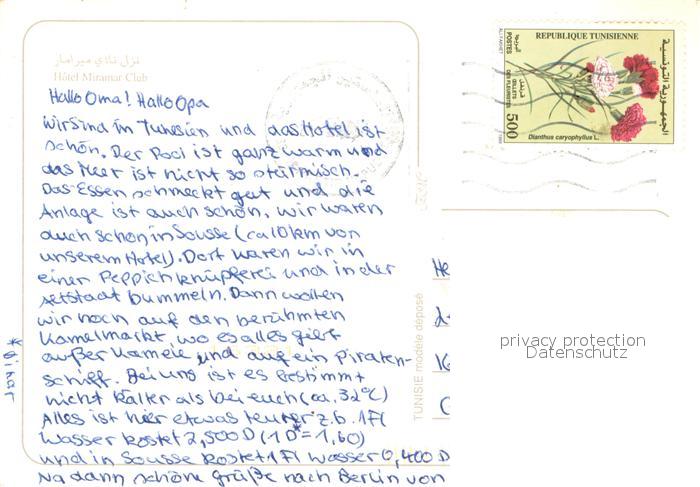 نزل نادي ميرامار
Hôtel Miramar Club
Hallo Oma! Hallo Opa
Wir sind in Tunesien und das Hotel ist
schön. Der Pool ist ganz warm und
das Meer ist nicht so stürmisch.
Das Essen schmeckt gut und die
Anlage ist auch schön. Wir waren
auch schon in Sousse (ca 10km von
unserem Hotel). Dort waren wir in
einer Teppichknüpferei und in der
Altstadt bummeln. Dann wollen
wir noch auf den berühmten
Kamelmarkt, wo es alles gibt
außer Kamele und auf ein Piraten-
schiff. Bei uns ist es bestimmt
nicht kälter als bei euch (ca. 32°C)
Alles ist hier etwas teuter z.b. 1Fl
Wasser kostet 2,500 D (1 D*= 1,60)
und in Sousse kostet 1Fl Wasser 0,400 D
Na dann schöne Grüße nach Berlin von
* Dinar
TUNISIE modèle déposé
REPUBLIQUE TUNISIENNE
الجمهورية التونسية
POSTES
البريد
ALI FAKHET
قرنفل
OEILLETS
DES FLEURISTES
500
Dianthus caryophyllus L.
1999
He
K
privacy protection
Datenschutz